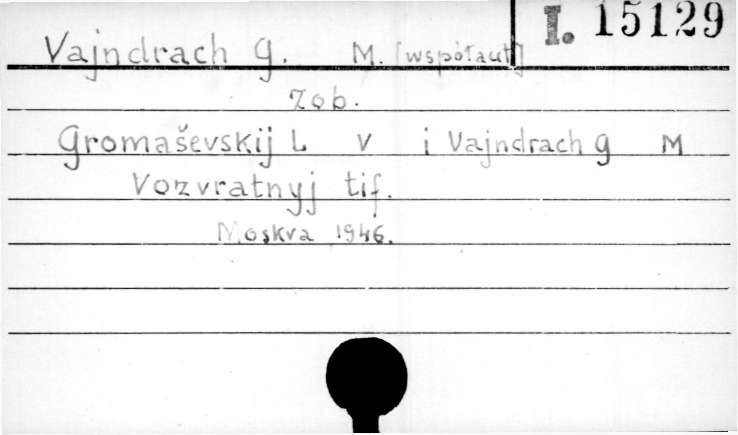 I. 15129
Vajndrach G. M. [współaut]
Zob.
Gromaševskij L V i Vajndrach G M
Vozvratnyj tif.
Moskva 1946.